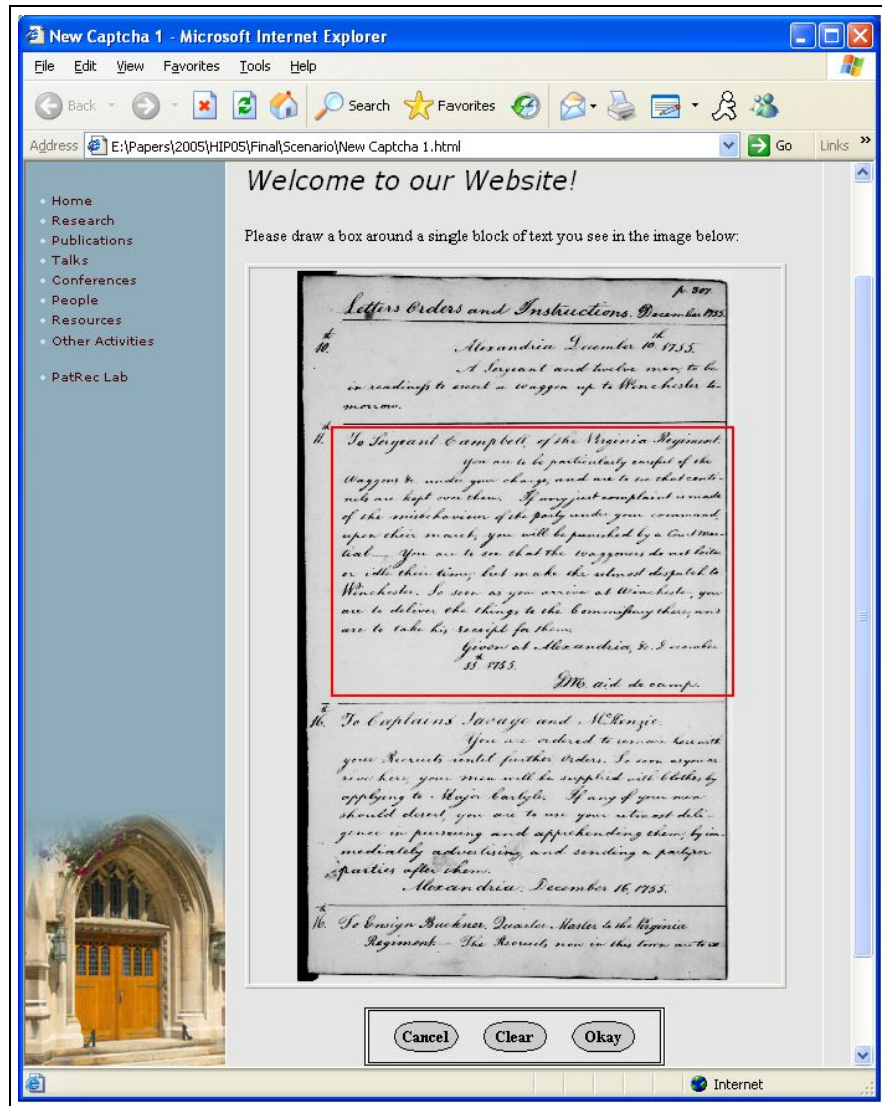 New Captcha 1 - Microsoft Internet Explorer
File Edit View Favorites Tools Help
Back Search Favorites
Address E:\Papers\2005\HIP05\Final\Scenario\New Captcha 1.html Go Links »
Home
Research
Publications
Talks
Conferences
People
Resources
Other Activities
PatRec Lab
Welcome to our Website!
Please draw a box around a single block of text you see in the image below:
p. 307
Letters Orders and Instructions. December 1755.
10.th Alexandria December 10th 1755.
A Sergeant and twelve men, to be
in readiness to escort a waggon up to Winchester to-
morrow.
11.th To Sergeant Campbell, of the Virginia Regiment.
You are to be particularly careful of the
Waggons &c. under your charge, and are to see that centi-
nels are kept over them. If any just complaint is made
of the misbehaviour of the party under your command,
upon their march, you will be punished by a Court Mar-
tial — You are to see that the waggoners do not loiter
or idle their time; but make the utmost despatch to
Winchester. So soon as you arrive at Winchester, you
are to deliver the things to the Commissary there, and
are to take his receipt for them.
Given at Alexandria, &c. December
1755.
aid de camp.
16.th To Captains Savage and McKenzie.
You are ordered to remain here with
your Recruits until further Orders. So soon as you ar
rive here, your men will be supplied with Clothes by
applying to Major Carlyle. If any of your men
should desert, you are to use your utmost deli-
gence in pursuing and apprehending them; by im-
mediately advertising, and sending a party or
parties after them.
Alexandria: December 16, 1755.
16.th To Ensign Buckner, Quarter Master to the Virginia
Regiment — The Recruits now in this town are to
Cancel Clear Okay
Internet